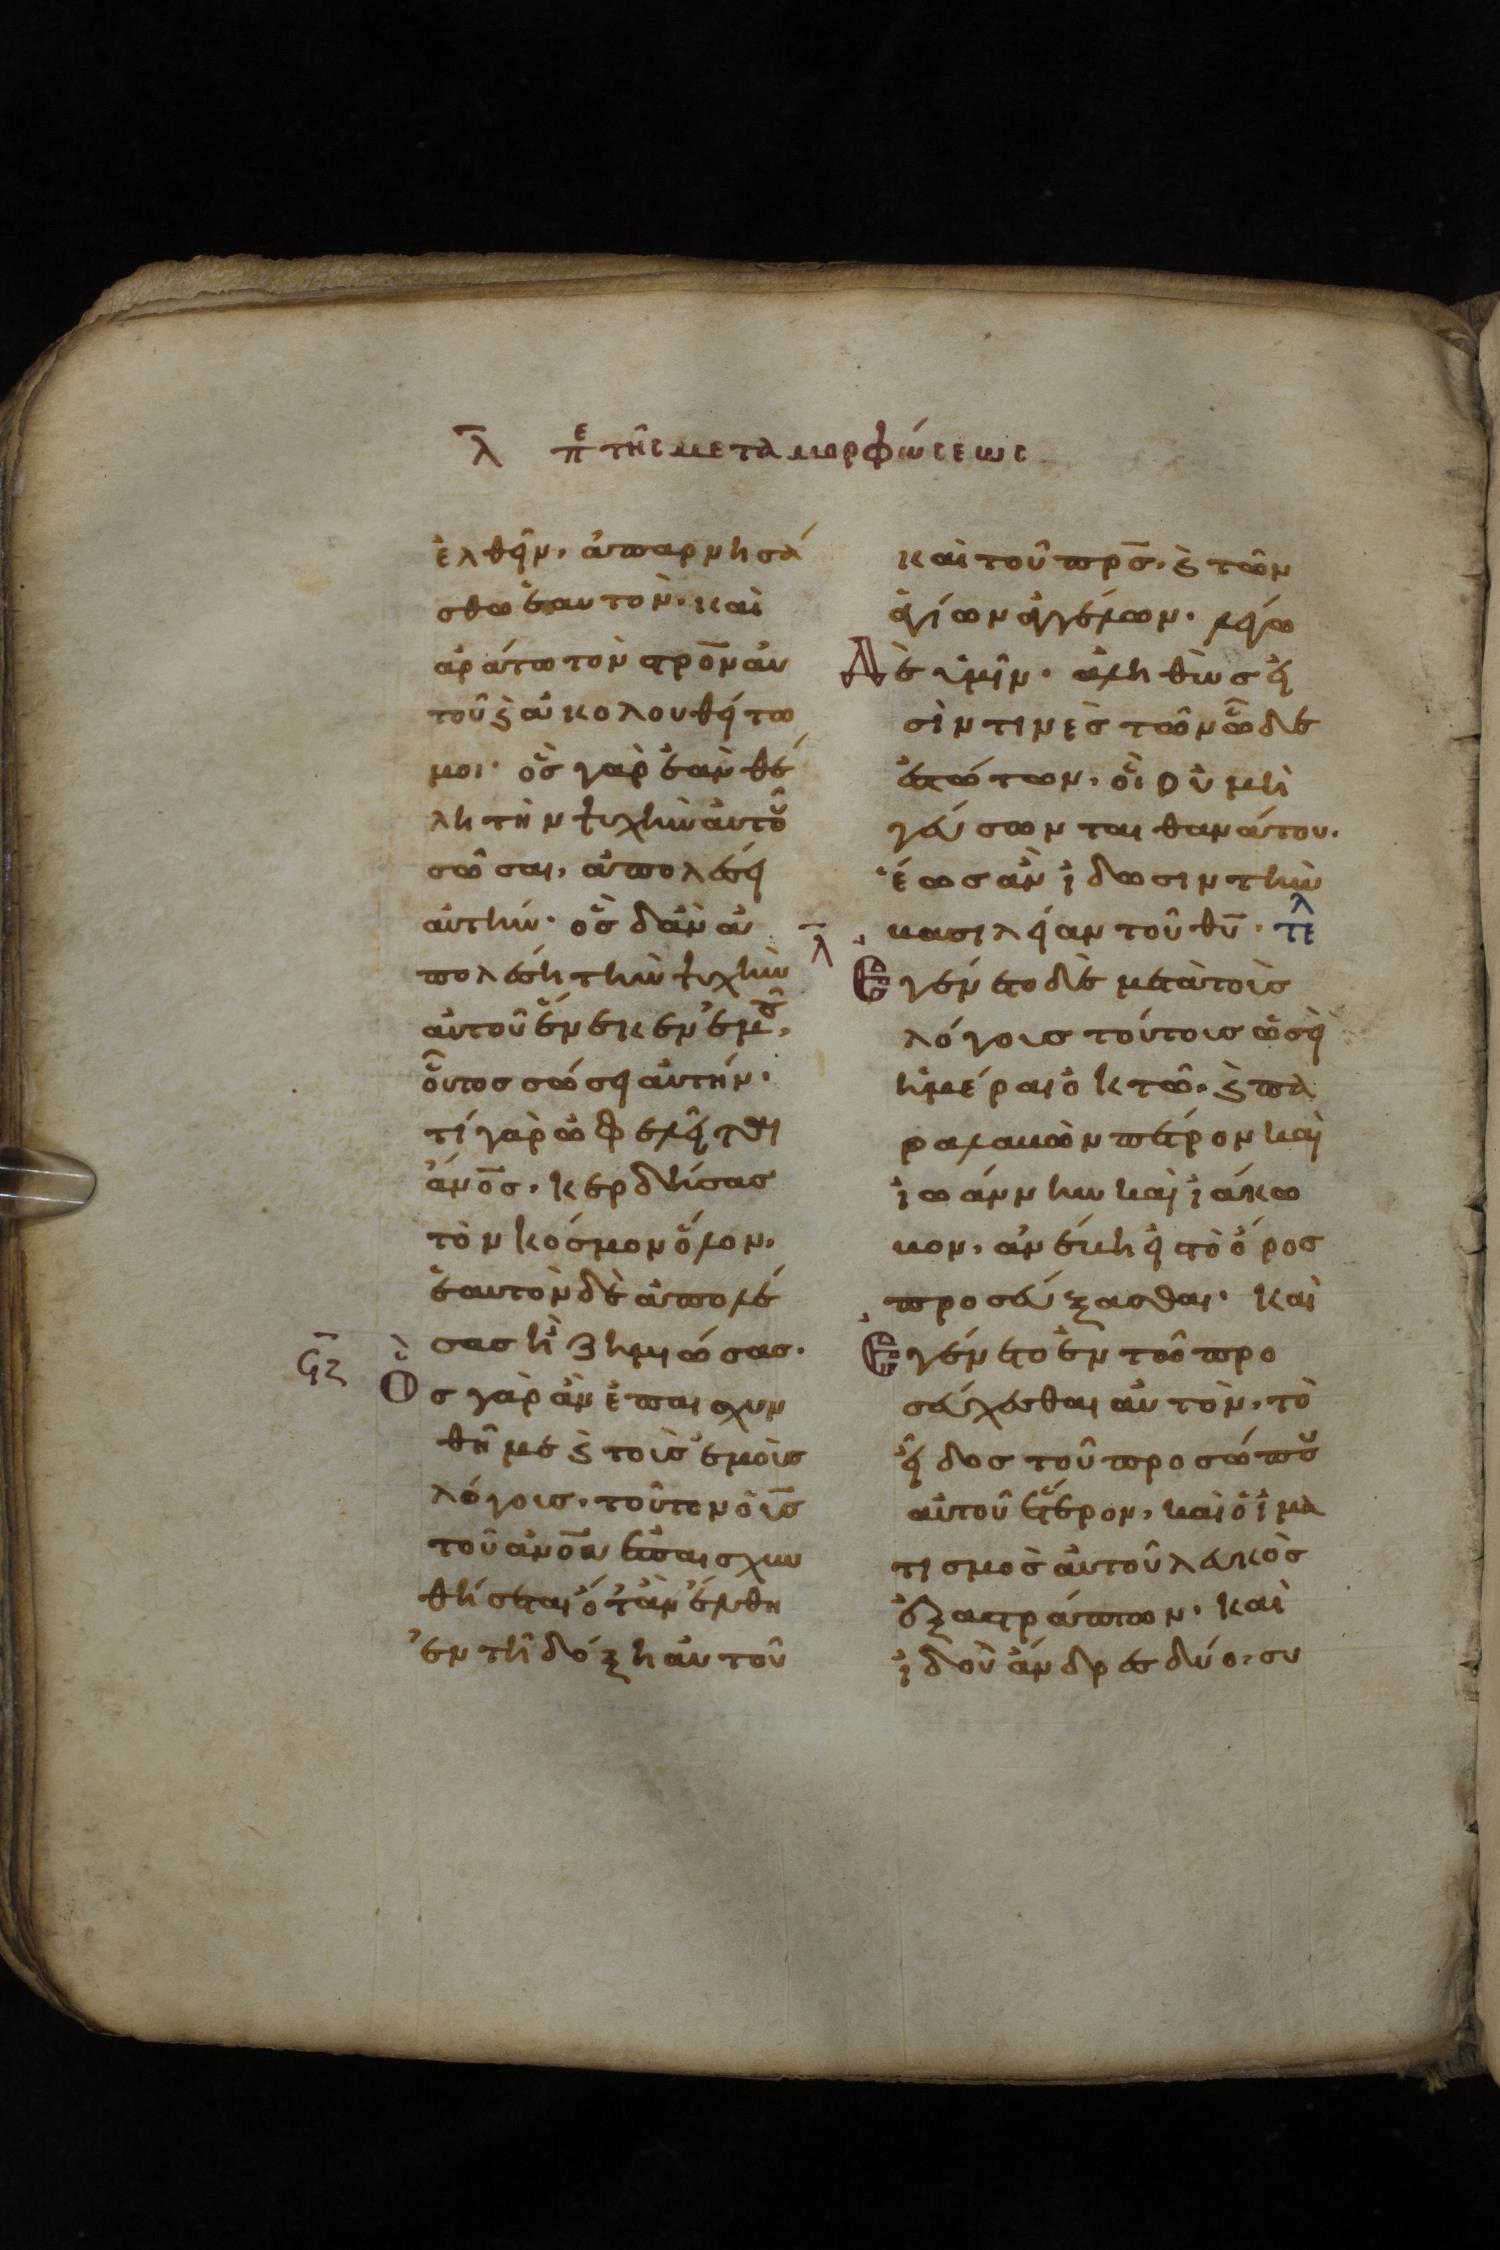 λ̅ πε τῆς μεταμορφώσεως
ἐλθεῖν, ἀπαρνησά
σθω ἑαυτὸν· καὶ
ἀράτω τὸν στρο̅ν αὐ
τοῦ ϗ ἀκολουθείτω
μοι· ὃς γὰρ ἐὰν θέ
λη τὴν ψυχὴν αὐτοῦ
σῶσαι, ἀπολέσει
αὐτήν· ὃς δ' ἂν ἀ
πολέση τὴν ψυχὴν
αὐτοῦ ἕνεκεν ἐμοῦ,
οὗτος σώσει αὐτήν·
τί γὰρ ὠφελεῖται
ἄνο̅σ, κερδήσας
τὸν κόσμον ὅλον,
ἑαυτὸν δὲ ἀπολέ
σας ἢ ζημιώσας·
Ὃ
ϟζ̅
ς γὰρ ἂν ἐπαισχυν
θῆ με ϗ τοὺς ἐμοὺς
λόγους, τοῦτον ὁ υι̅σ
τοῦ ἀνο̅υ ἐπαισχυν
θήσεται ὅταν ἔλθη
ἐν τῆ δόξη αὐτοῦ
καὶ τοῦ πρ̅σ, ϗ τῶν
ἁγίων ἀγγέλων· λέγω
Δὲ ὑμῖν· ἀληθῶς εἰ
σὶν τινὲς τῶν ὧδε
ἑστώτων, οἳ οὐ μὴ
γεύσωνται θανάτου·
ἕως ἂν ἴδωσιν τὴν
βασιλείαν τοῦ θυ̅· τελ
λ̅
Ἐγένετο δὲ μετὰ τοὺς
λόγους τούτους ὡσεὶ
ἡμέραι ὀκτῶ, ϗ πα
ραλαβὼν πέτρον καὶ
ἰωάννην καὶ ἰάκω
βον, ἀνέβη εἰς τὸ ὄρος
προσεύξασθαι· καὶ
Ἐγένετο ἐν τῶ προ
σεύχεσθαι αὐτὸν, τὸ
εἶδος τοῦ προσώπου
αὐτοῦ ἕτερον, καὶ ὁ ἱμα
τισμὸς αὐτοῦ λευκὸς
ἐξαστράπτων· καὶ
ἰδοὺ ἄνδρες δύο, συ